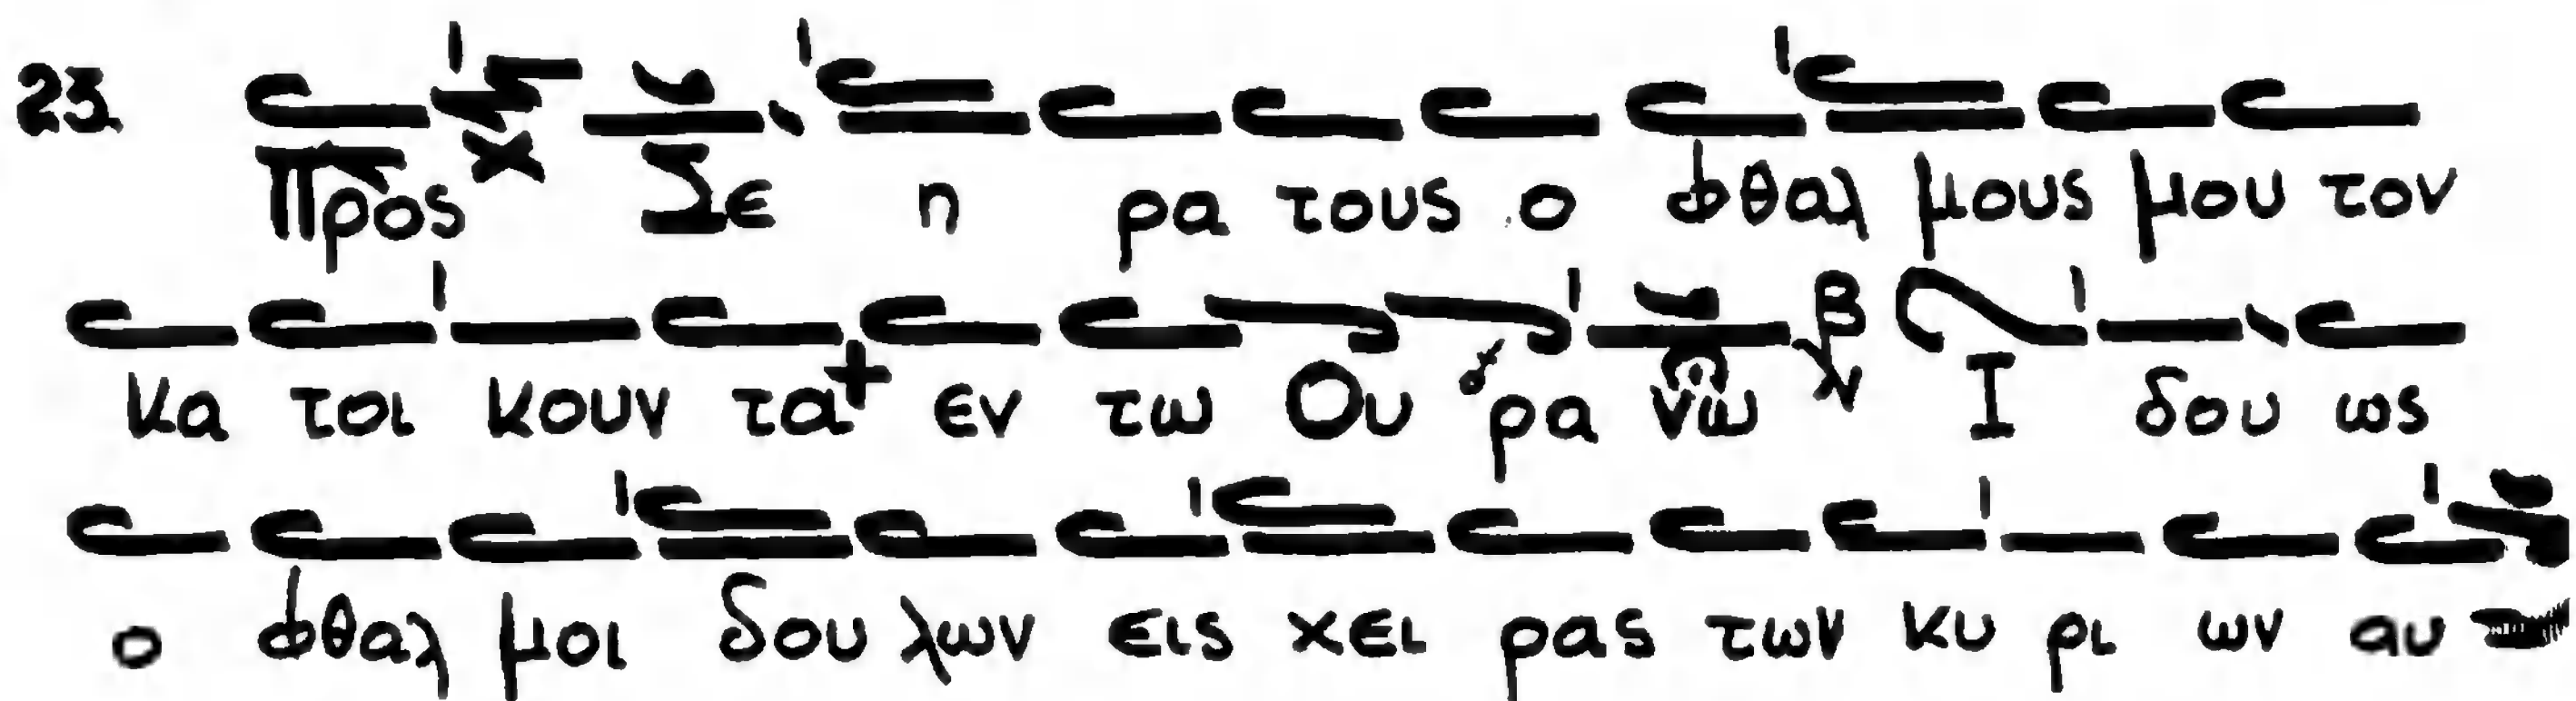 23. Προς Σε η ρα τους ο φθαλ μους μου τον
κα τοι κουν τα + εν τω Ου ρα νω Ι δου ως
ο φθαλ μοι δου λων εις χει ρας των κυ ρι ων αυ